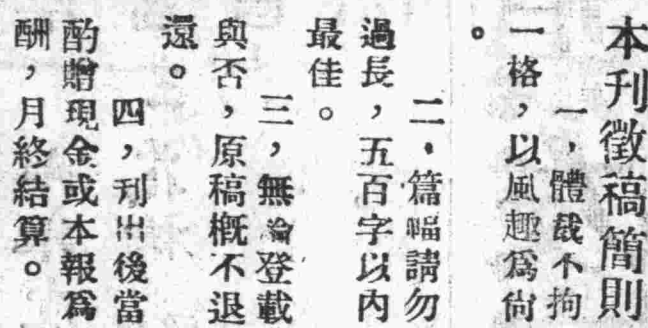 本刊徵稿簡則
一，體裁不拘
一格，以風趣爲尙
。
二，篇幅請勿
過長，五百字以內
最佳。
三，無淪登載
與否，原稿概不退
還。
四，刊出後當
酌贈現金或本報爲
酬，月終結算。